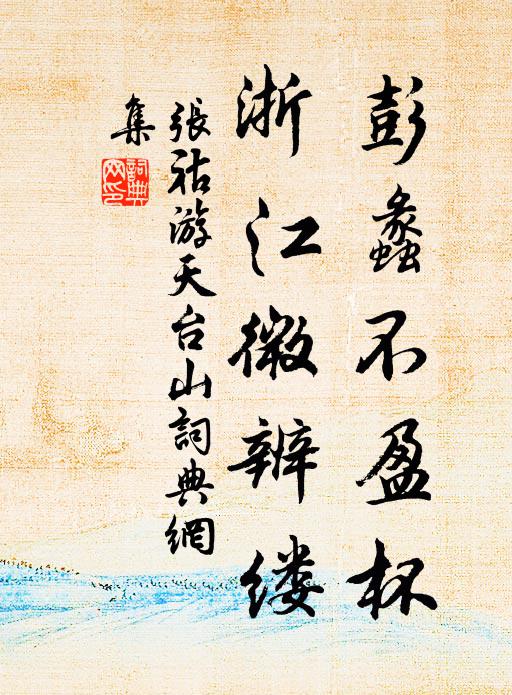 彭蠡不盈杯
浙江微辨缕
張祜游天台山詞典網
集
詞典網印